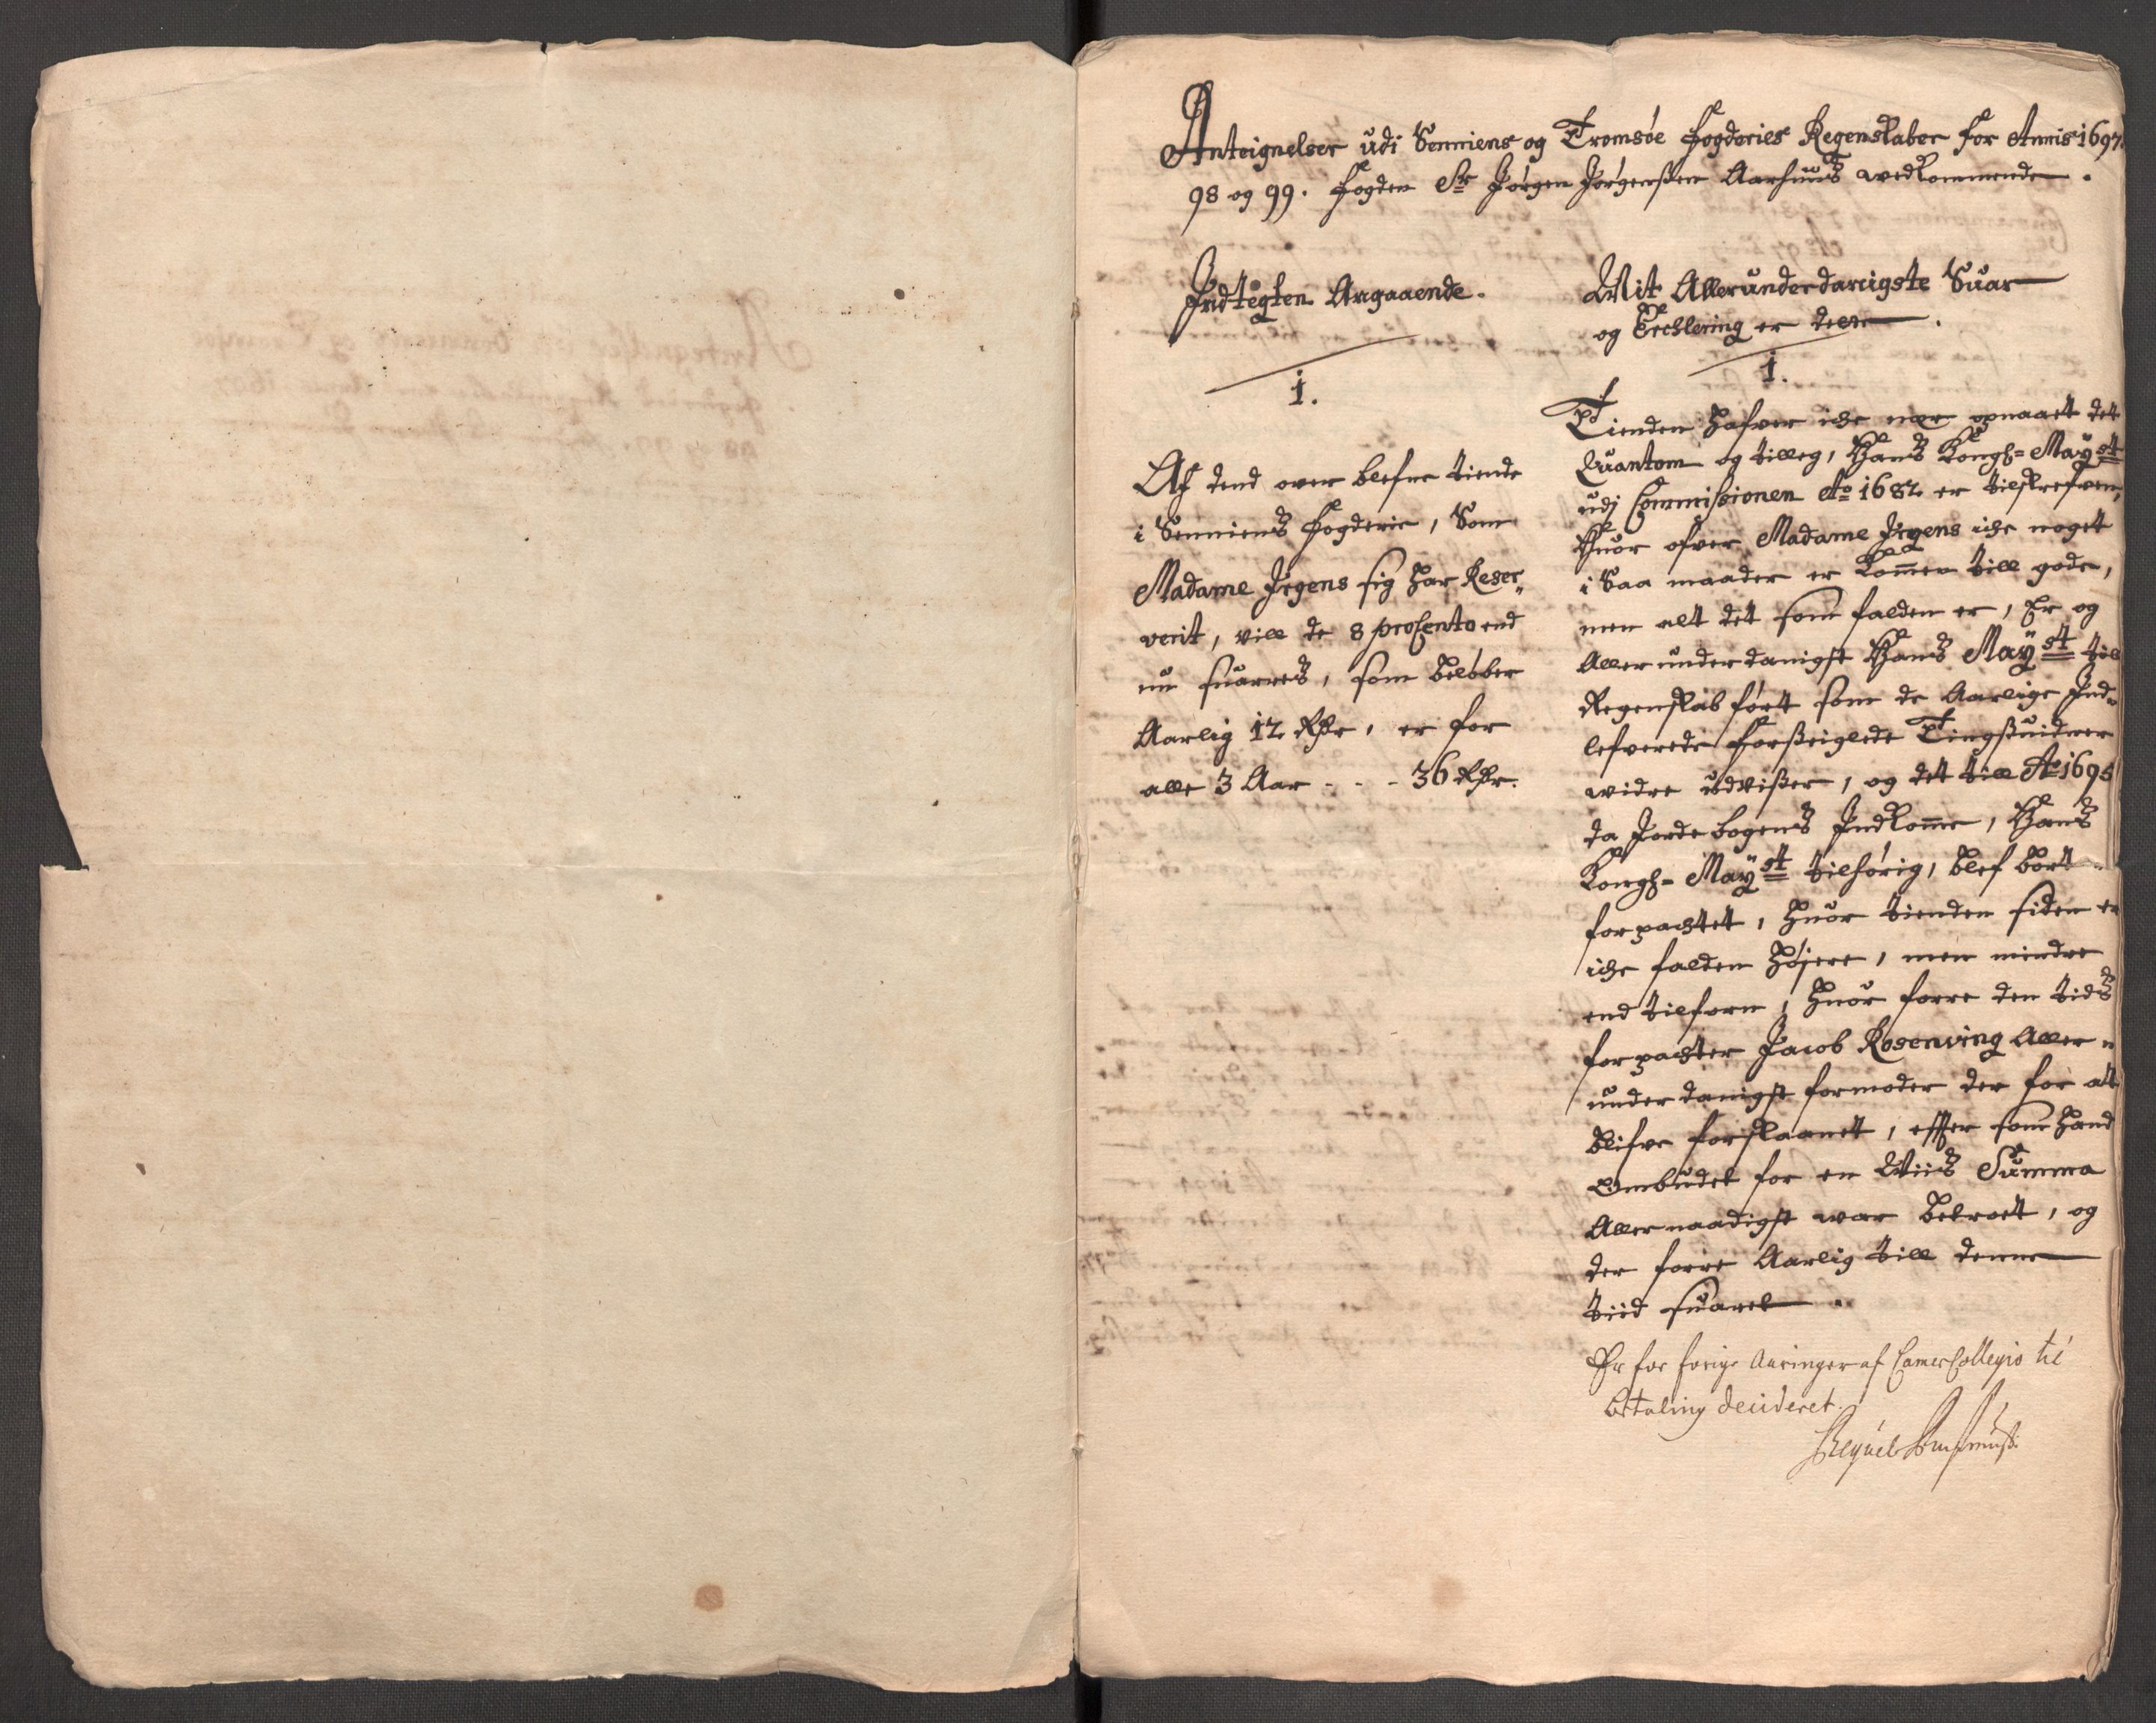 Anteignelser udi Senniens og Tromsøe fogderies Regenskaber for Annis 1697.
98 og 99. fogden Sr Jørgen Jørgenssen Aarhuus wedkommende.
Indtegten Angaaende.
1.
Af dend over blefne tiende
i Senniens fogderie, Som
Madame Irgens sig har Reser„
verit, vill de 8 proCento end
nu suarres, som beløber
Aarlig 12 Rdr, er for
alle 3 Aar - - - 36 Rdr.
Mit Allerunderdanigste Suar
og Erchlering er dend.
1.
Tienden hafver iche mer opnaaett det
Quantom og tilleg, Hans Kongl= Mayst
udj Commissionen Ao 1682 er tilskrefven,
Huor ofver Madame Irgens iche noget
i Saa maader er kommen till gode,
men alt det som falden er, Er og
Aller underdanigst Hans Mayst till
Regenskab ført som de Aarlige Ind„
lefverede forseiglede Tingsuidner
widre udviser, og det till Ao 1695
da Jordebogens Indkomme, Hans
Kongl= Mayst tilhørig, blef bort„
forpachtet, huor tienden siden er
iche falden høiere, men mindre
end tilforn, huor forre den tids
forpachter Jacob Rosenving Aller„
underdanigst formoder der for att
blifve forskaanet, efftersom hand
Ombudet for en Wiis Summa
Allernaadigst war betroett, og
der forre Aarlig till denne
tiid suaret.
Er for forige Aaringer af CamerCollegio til
betaling decideret.